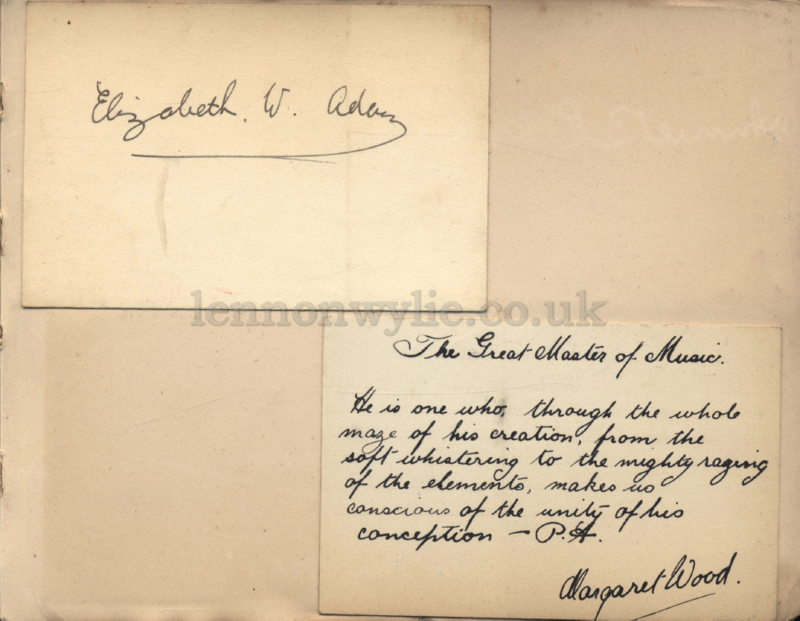 Elizabeth. W. Adams
lennonwylie.co.uk
The Great Master of Music.
He is one who, through the whole
maze of his creation, from the
soft whistering to the mighty raging
of the elements, makes us
conscious of the unity of his
conception — P.A.
Margaret Wood.